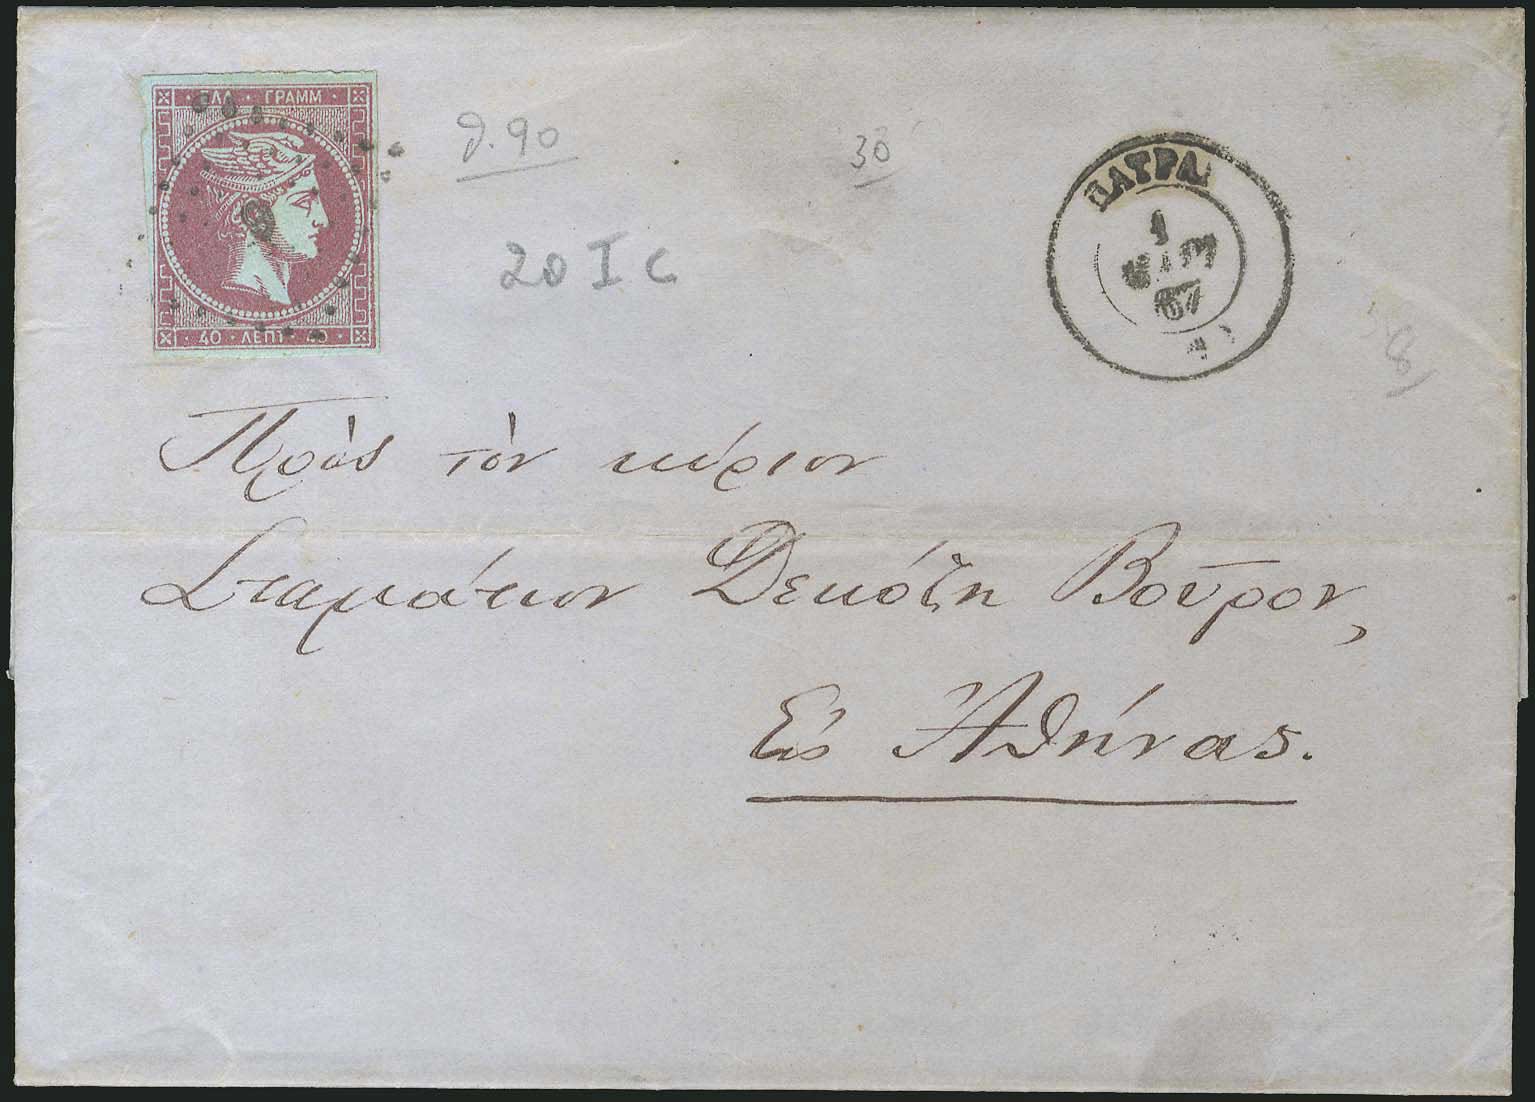 ΕΛΛ · ΓΡΑΜΜ
40 · ΛΕΠΤ · 40
9.90
30
20 I c
ΠΑΤΡΑΙ
1
ΜΑΡΤ
67
Πρὸς τὸν κύριον
Σταμάτιον Δεκόζη Βοῦρον,
Εἰς Ἀθήνας.